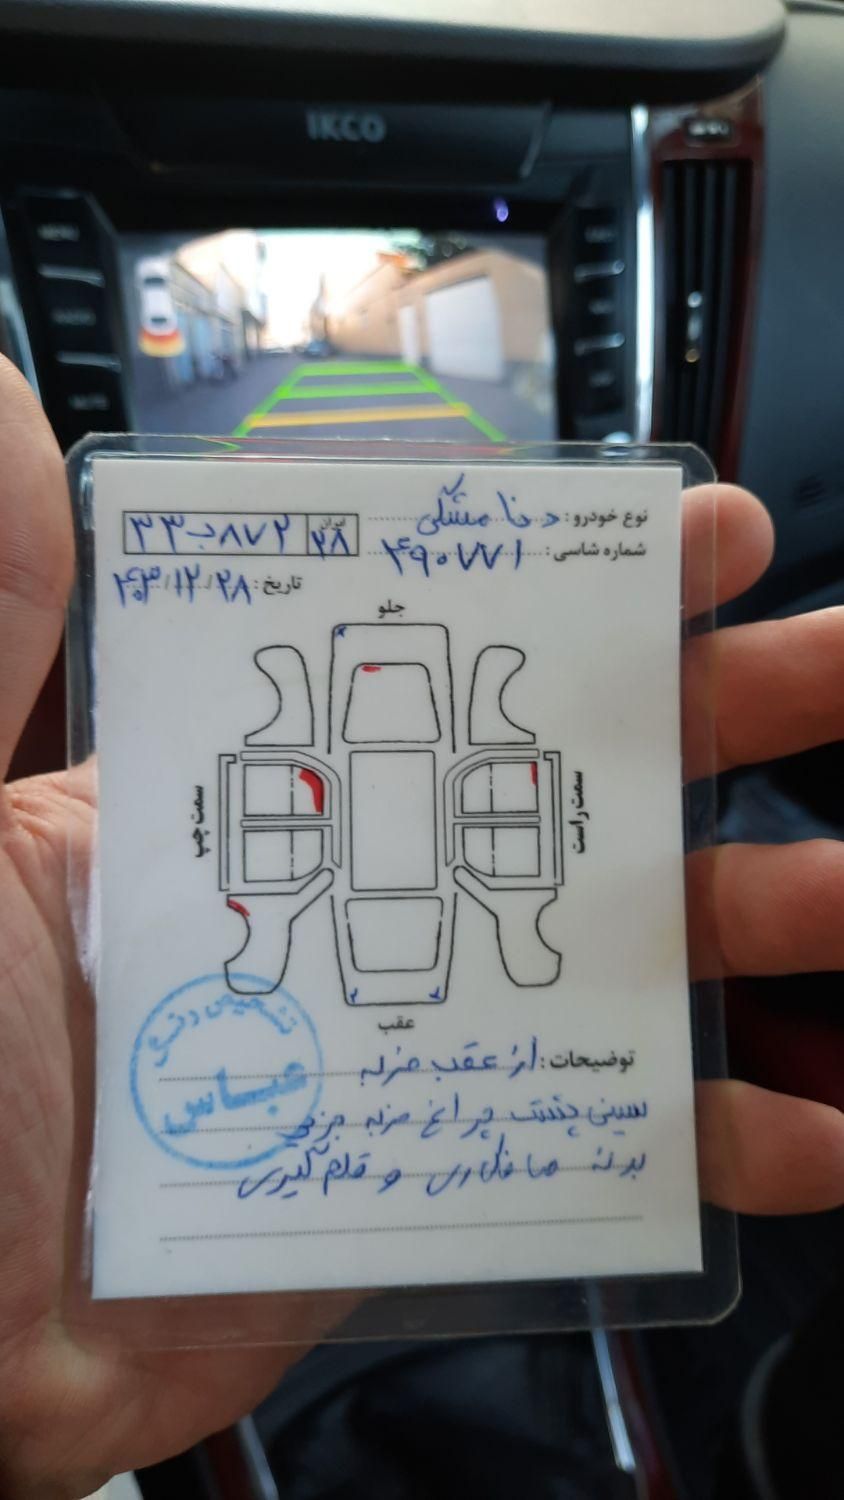 IKCO
MENU
نوع خودرو: دنا مشکی
ایران
۳۳ ب ۸۷۲ ۲۸
شماره شاسی: ۴۹۰۷۷۱
تاریخ: ۴۰۳/۱۲/۲۸
جلو
سمت چپ
سمت راست
عقب
تشخیص رنگ
عباس
توضیحات: از عقب ضربه
سینی پشت چراغ ضربه جزیی
بدنه صافکاری و قلم گیری